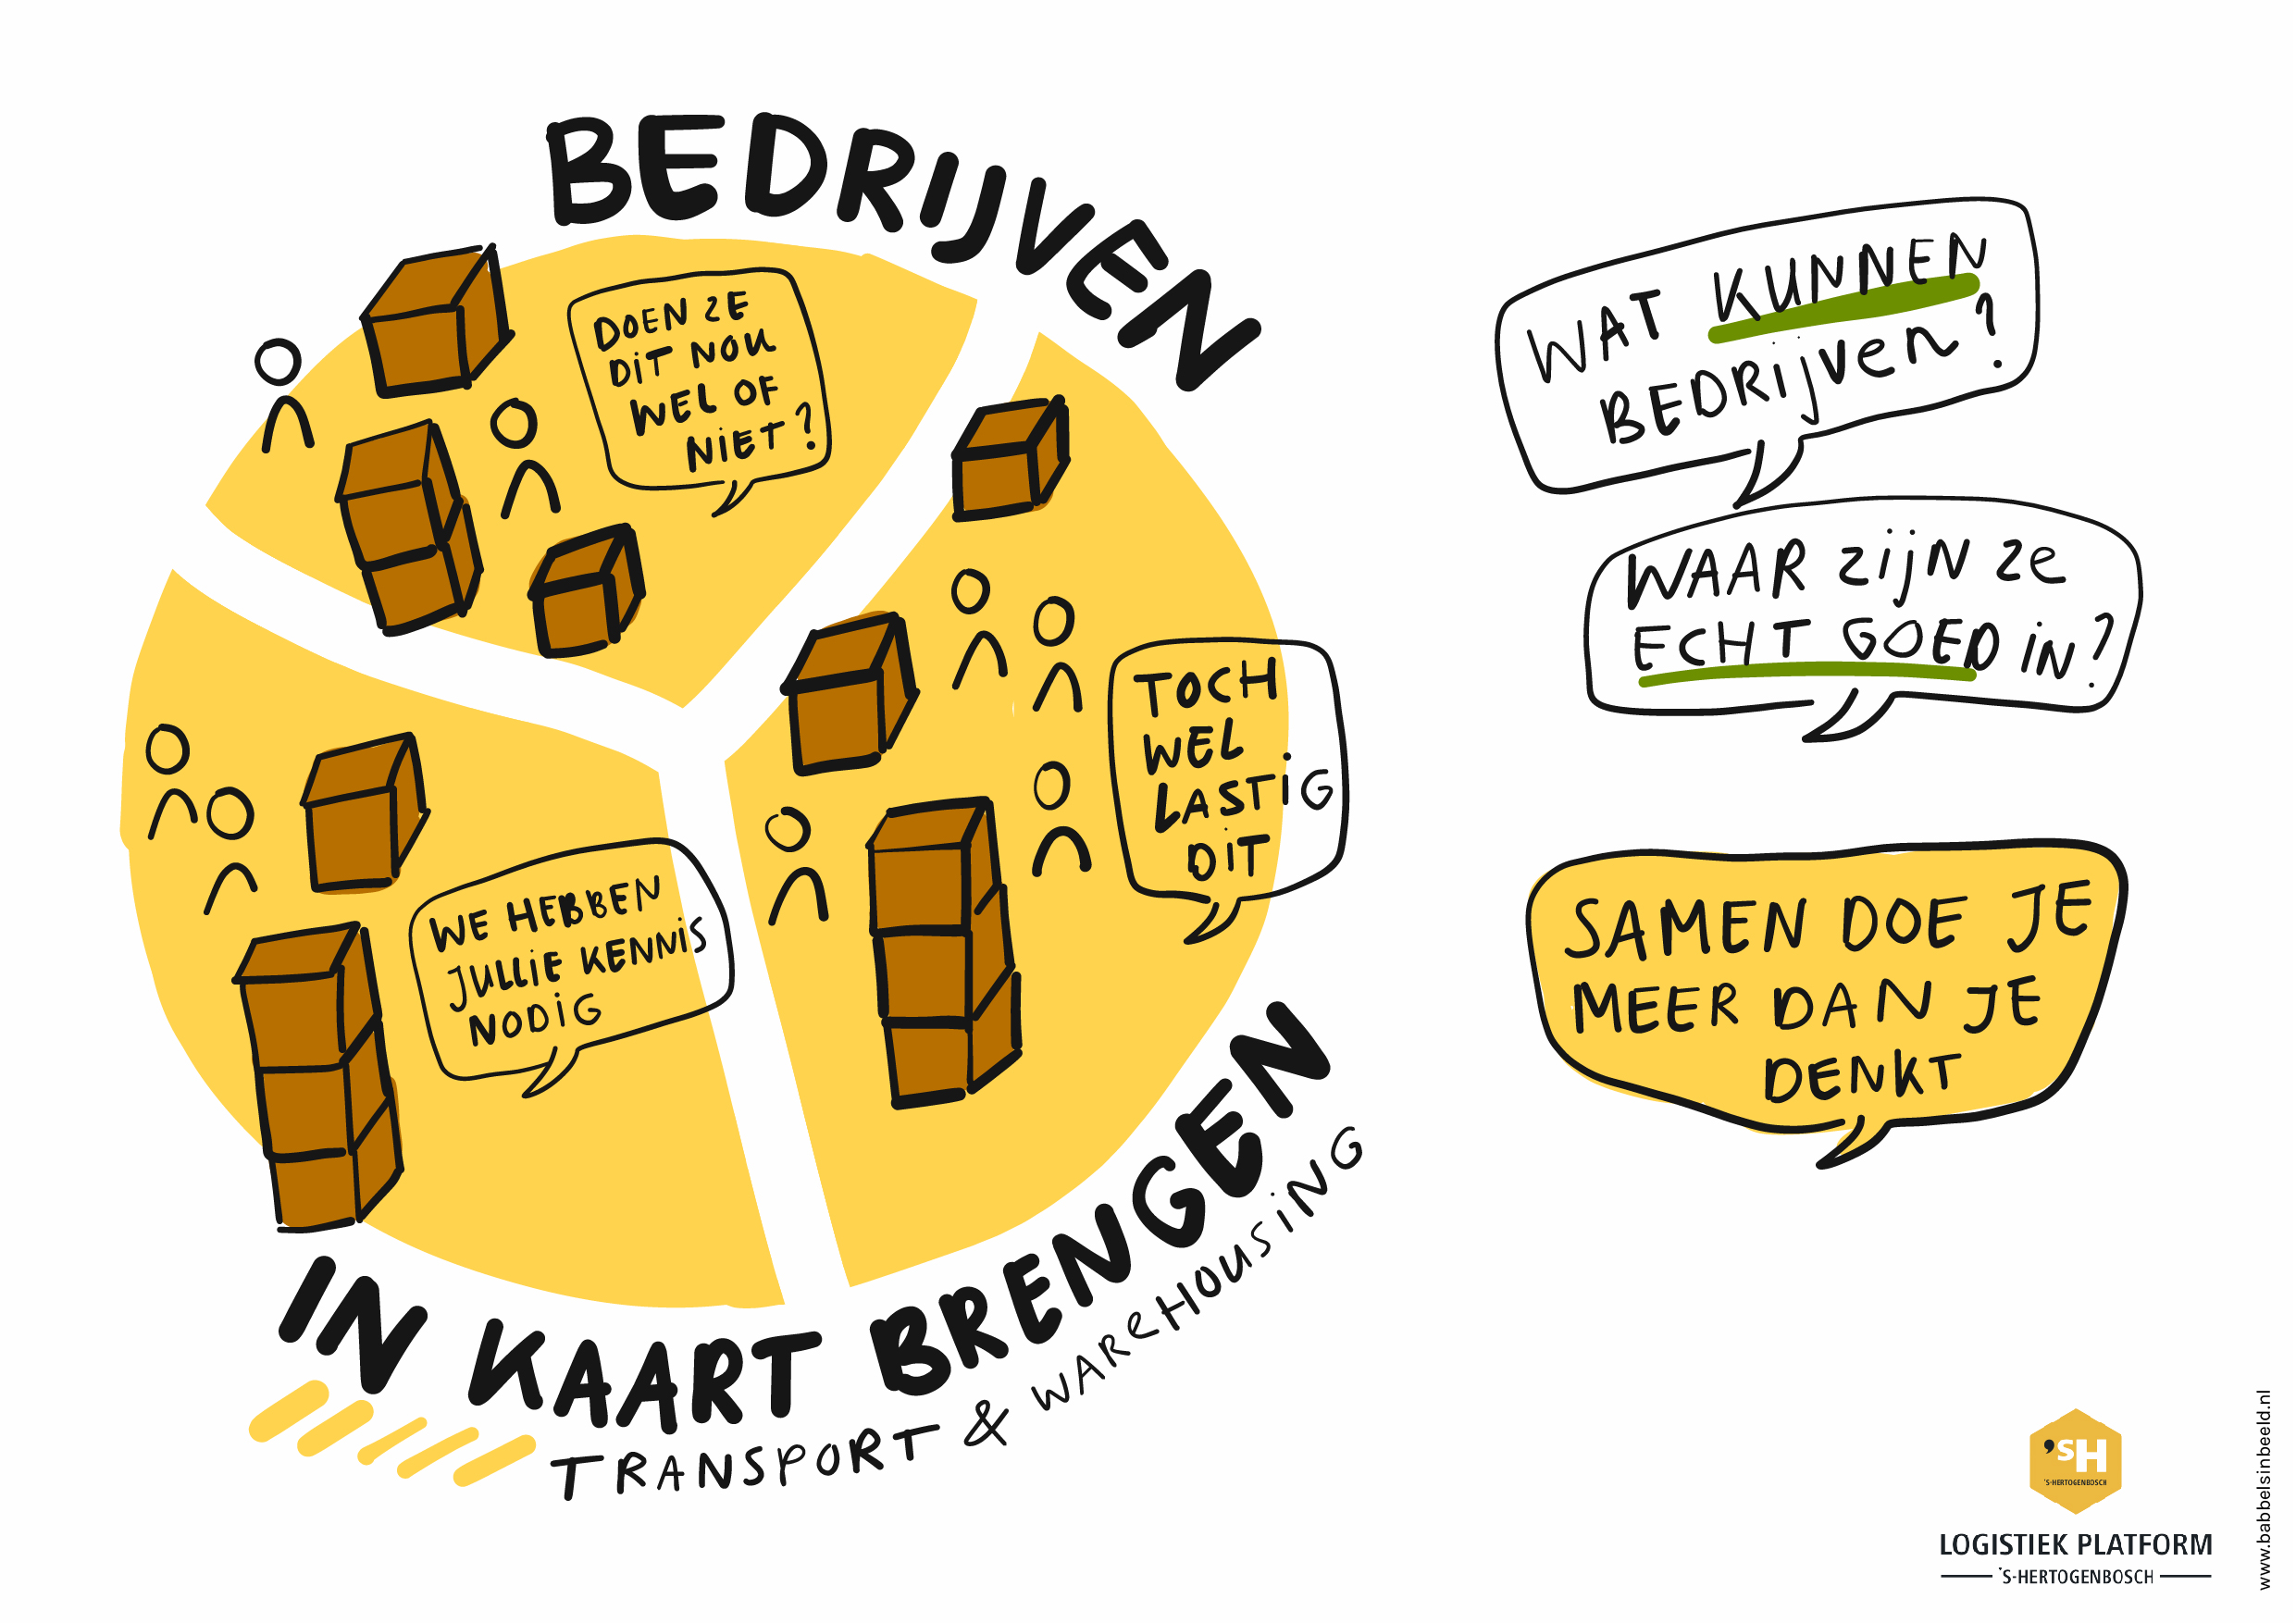 BEDRIJVEN
DOEN ZE
DIT NOU
WEL OF
NIET?
TOCH
WEL
LASTIG
DIT
WE HEBBEN
JULLIE KENNIS
NODIG
IN KAART BRENGEN
TRANSPORT & WAREHOUSING
WAT KUNNEN
BEDRIJVEN?
WAAR ZIJN ZE
ECHT GOED IN?
SAMEN DOE JE
MEER DAN JE
DENKT
'SH
'S-HERTOGENBOSCH
LOGISTIEK PLATFORM
'S-HERTOGENBOSCH
www.babbelsinbeeld.nl